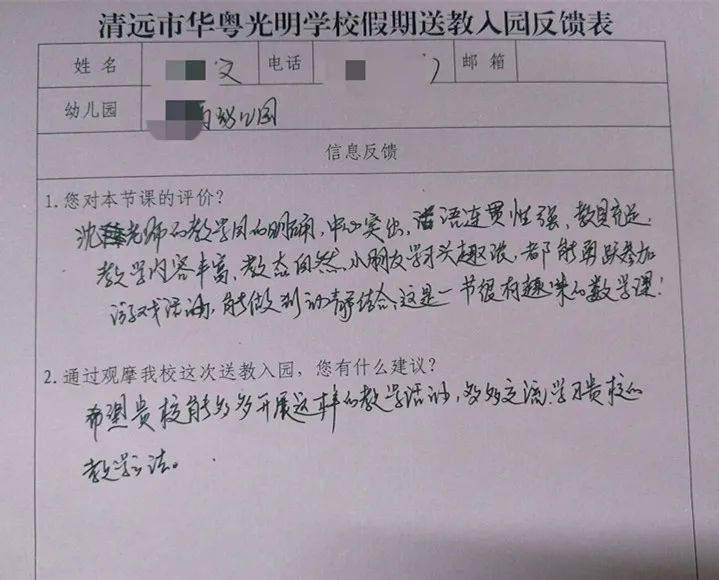 清远市华粤光明学校假期送教入园反馈表
姓名 文 电话 邮箱
幼儿园 幼儿园
信息反馈
1.您对本节课的评价?
沈老师的教学目的明确,中心突出,语连贯性强,教具充足,
教学内容丰富、教态自然,小朋友学习兴趣浓,都能勇跃参加
游戏活动,能做到动静结合,这是一节很有趣味的数学课!
2.通过观摩我校这次送教入园,您有什么建议?
希望贵校能够多开展这样的教学活动,多多交流、学习贵校的
教学方法。